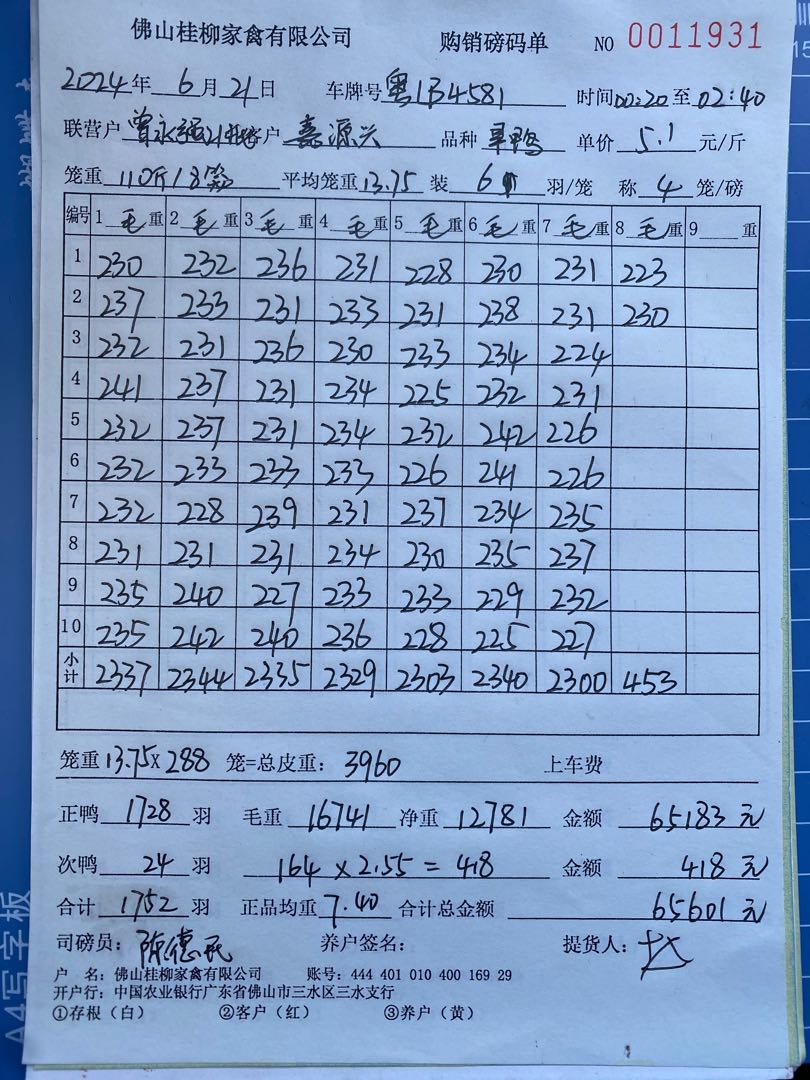 佛山桂柳家禽有限公司 购销磅码单 NO 0011931
2024年 6月21日 车牌号 粤 时间00:20至02:40
联营户 曾永强 客户 嘉源兴 品种 单价 5.1 元/斤
笼重 110斤/8笼 平均笼重13.75 装 6 羽/笼 称 4 笼/磅
编号 1毛重 2毛重 3毛重 4毛重 5毛重 6毛重 7毛重 8毛重 9 重
1 230 232 236 231 228 230 231 223
2 237 233 231 233 231 238 231 230
3 232 231 236 230 233 234 224
4 241 237 231 234 225 232 231
5 232 237 231 234 232 242 226
6 232 233 233 233 226 241 226
7 232 228 239 231 237 234 235
8 231 231 231 234 230 235 237
9 235 240 227 233 233 229 232
10 235 242 240 236 228 225 227
小计 2337 2344 2335 2329 2303 2340 2300 453
笼重13.75×288 笼=总皮重: 3960 上车费
正鸭 1728 羽 毛重 16741 净重 12781 金额 65183元
次鸭 24 羽 164×2.55=418 金额 418元
合计 1752 羽 正品均重 7.40 合计总金额 65601元
司磅员: 陈德 养户签名: 提货人:
户 名: 佛山桂柳家禽有限公司 账号: 444 401 010 400 169 29
开户行: 中国农业银行广东省佛山市三水区三水支行
①存根(白) ②客户(红) ③养户(黄)
A4写字板